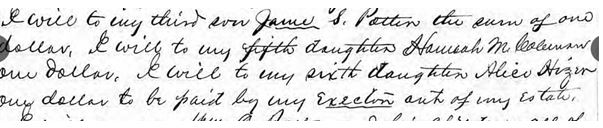 I will to my third son Jame S. Potter the sum of one
dollar, I will to my fifth daughter Hannah M. Coleman
one dollar, I will to my sixth daughter Alice Hizer
one dollar to be paid by my Exector out of my Estate.